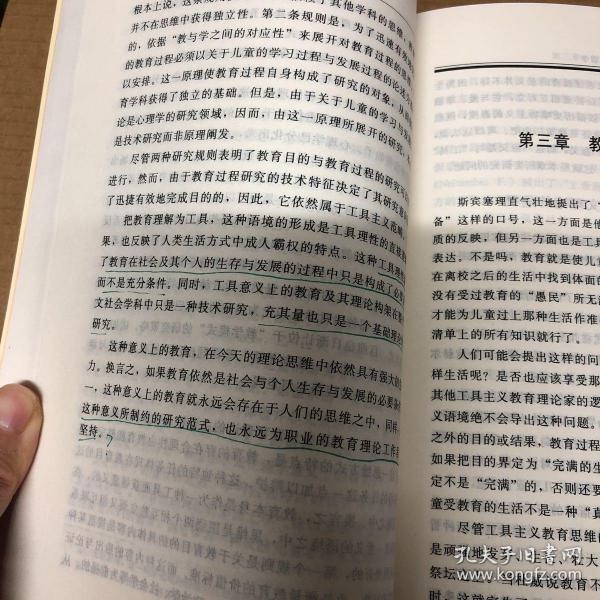 根本上说，这条规
其他学科的思维，教
并不在思维中获得独立性。第二条规则是，为了迅速有
的，依据“教与学之间的对应性”来展开对教育过程的思
的教育过程必须以关于儿童的学习过程与发展过程的论述
以安排。这一原理使教育过程自身构成了研究的对象，从
育学科获得了独立的基础。但是，由于关于儿童的学习与
论是心理学的研究领域，因而，由这一原理所展开的研究，
是技术研究而非原理阐发。
尽管两种研究规则表明了教育目的与教育过程的研究可
进行，然而，由于教育过程研究的技术特征决定了其研究意
了迅捷有效地完成目的的，因此，它依然属于工具主义范畴
把教育理解为工具，这种语境的形成是工具理性的直接
果，也反映了人类生活方式中成人霸权的特点。这种工具理性
了教育在社会及其个人的生存与发展的过程中只是构成了必要
而不是充分条件。同时，工具意义上的教育及其理论构架在
文社会学科中只是一种技术研究，充其量也只是一个基础理论
研究。
这种意义上的教育，在今天的理论思维中依然具有强大的
力。换言之，如果教育依然是社会与个人生存与发展的必要条
一，这种意义上的教育就永远会存在于人们的思维之中，同样，
这种意义所制约的研究范式，也永远为职业的教育理论工作者
坚持。
第三章 教
斯宾塞理直气壮地提出了“
备”这样的口号，这一方面是他
质的反映，但另一方面也是工具
表达。不是吗，教育就是使儿童
在离校之后的生活中找到体面的
没有受过教育的“愚民”所无法
才能为儿童过上那种生活作准
清单上的所有知识就行了。
人们可能会提出这样的问
样生活呢？是否也应该享受那
其他工具主义教育理论家的逻
义语境绝不会导出这种问题。
之外的目的或结果，教育过程
如果把目的界定为“完满的生
定不是“完满”的，否则还要
童受教育的生活不是一种“真
尽管工具主义教育思维的
是顽强地发芽、生存、壮大
祭坛
当杜威说教育不
孔夫子旧书网
www.kongfz.com